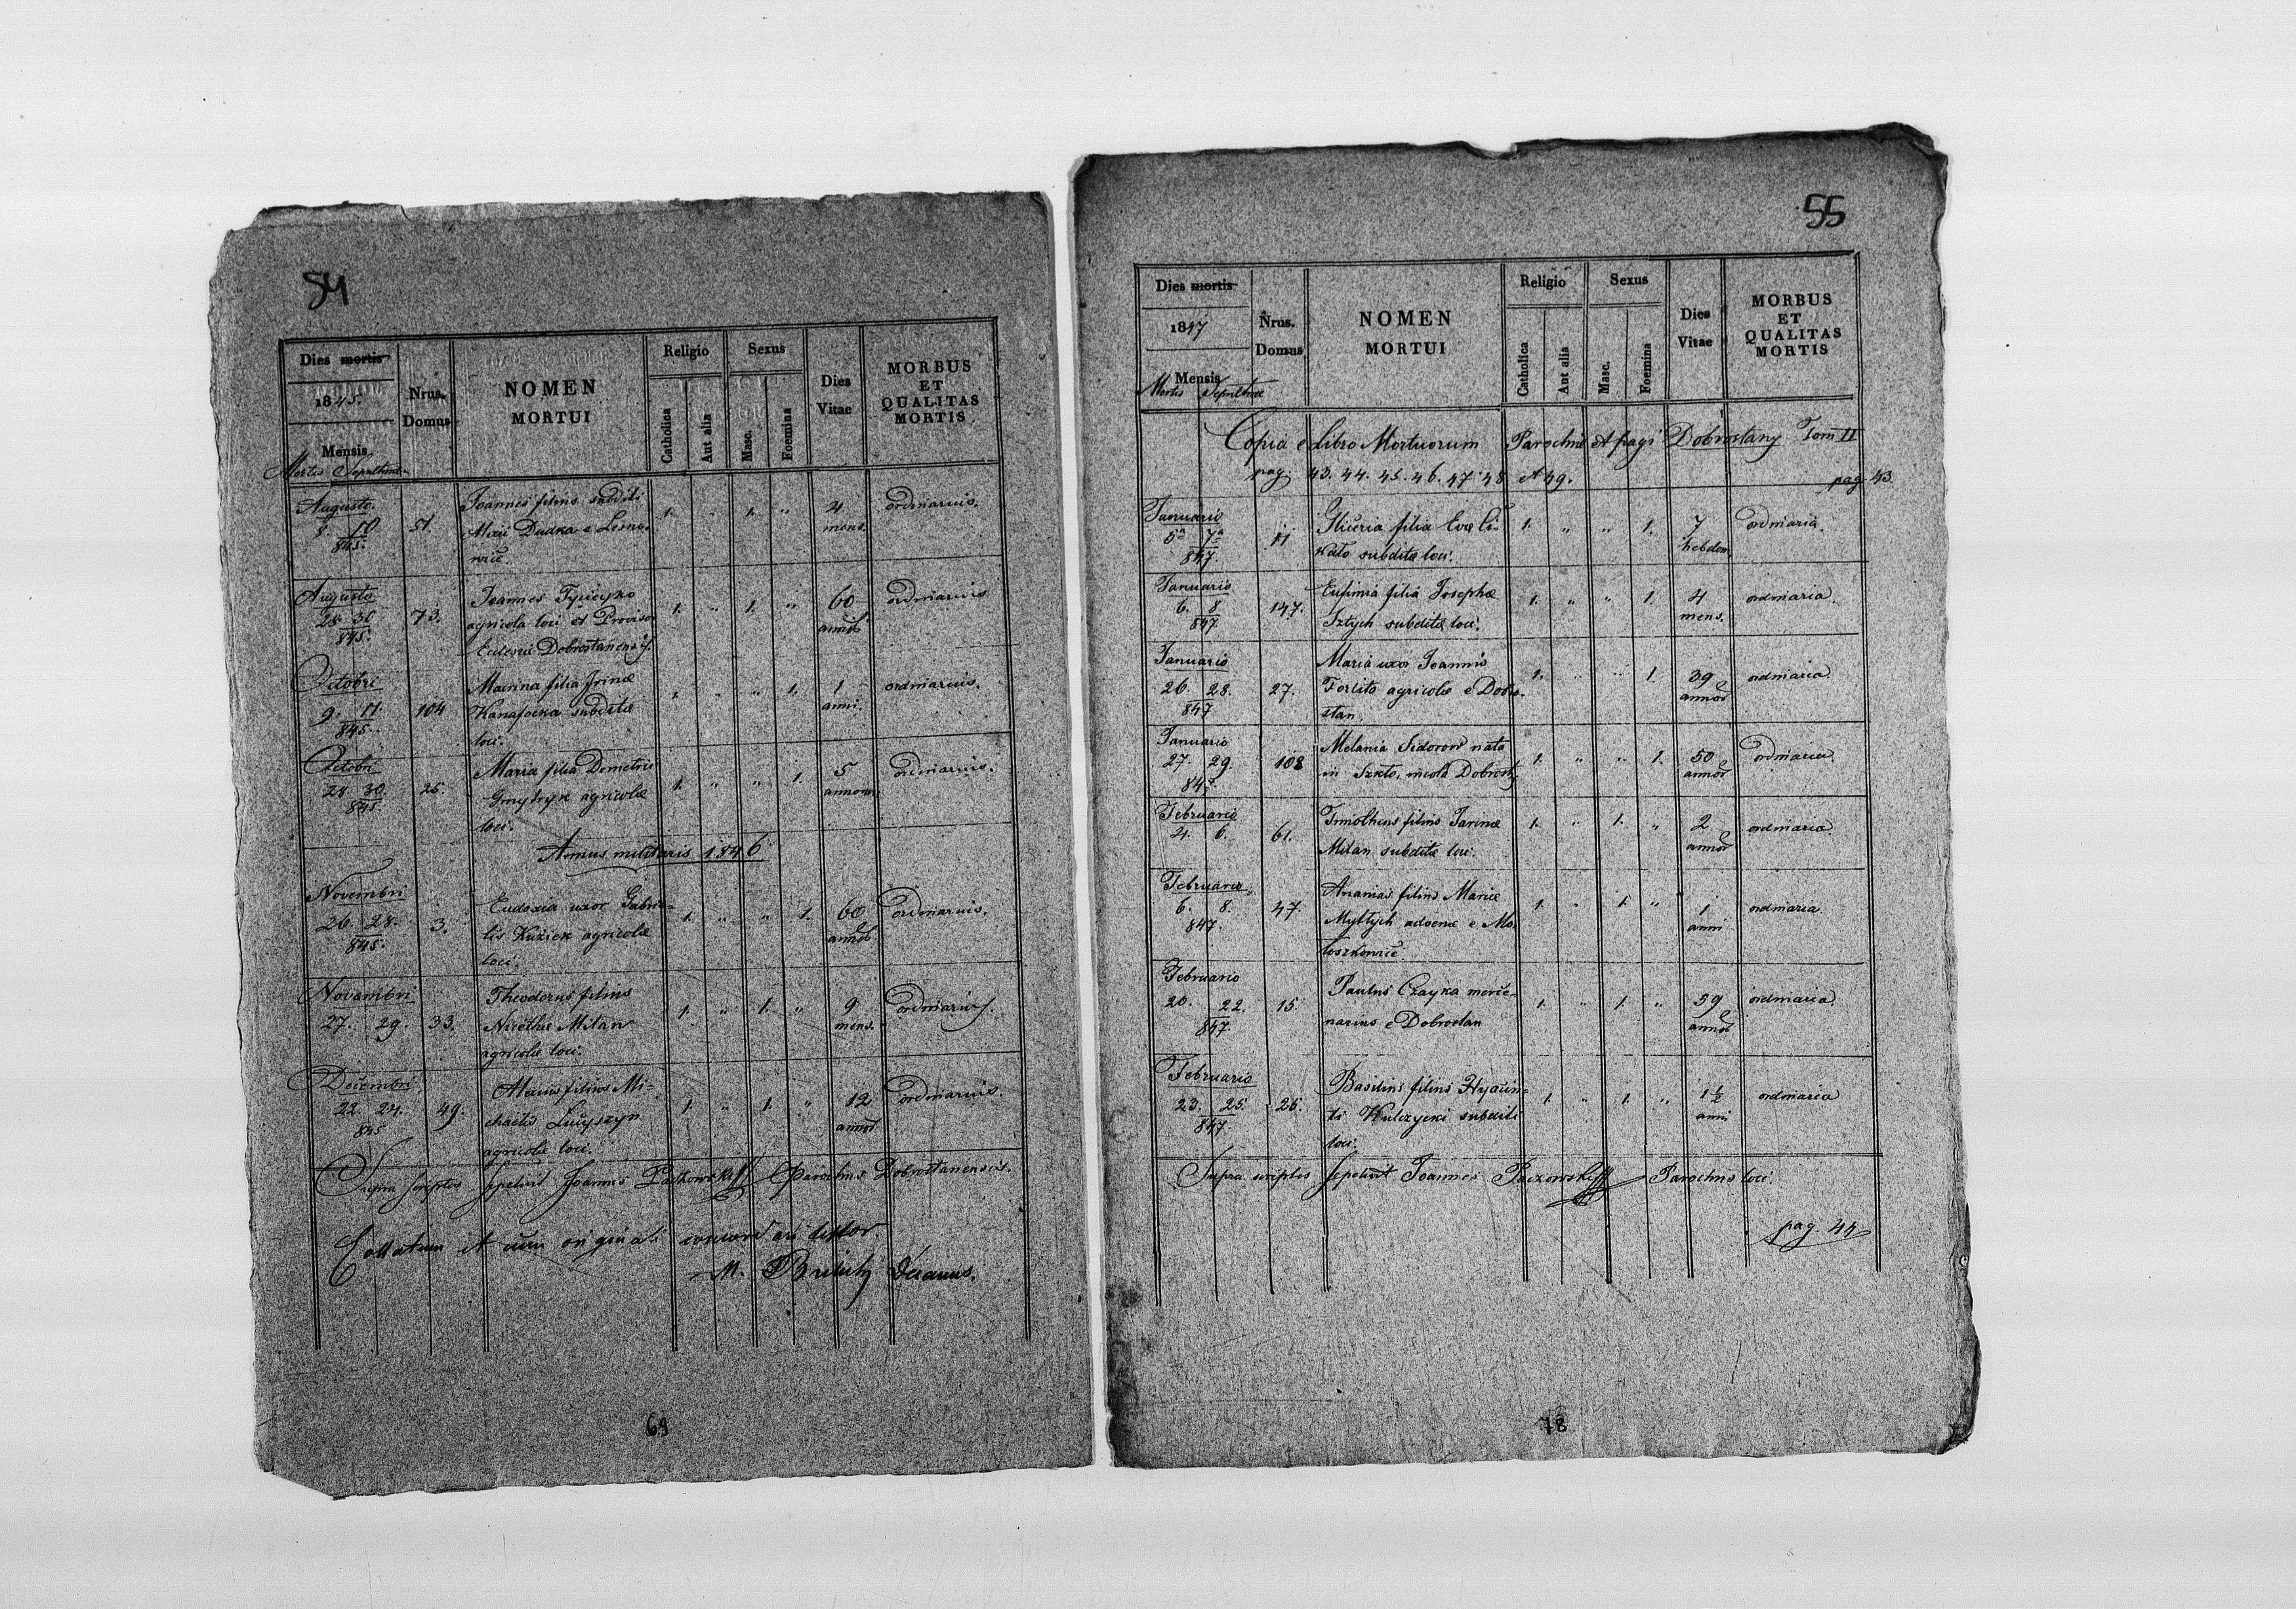 54
Dies mortis
1845.
Mensis
Mortis Sepulturae
Nrus.
Domus
NOMEN
MORTUI
Religio
Catholica
Aut alia
Sexus
Masc.
Foemina
Dies
Vitae
MORBUS
ET
QUALITAS
MORTIS
Augusto
8. 10
845.
51.
Joannes filius subditi
Dudka e
1. " 1. "
4
mens.
ordinarius.
Augusto
28 30
845.
73.
Joannes
agricola loci et Proviso
Dobrostanensis.
1. " 1. "
60
annor
ordinarius
Octobri
9. 11.
845.
104
Marina filia Irinae
subditae
loci.
1. " " 1.
1
anni.
ordinarius.
Octobri
28 30.
845
25.
Maria filia Demetrii
Gmytryk agricolae
loci.
1. " " 1.
5
annorum
ordinarius.
Annus militaris 1846
Novembri
26 28.
845.
3.
Eudoxia uxor Gabrie-
lis Kuziek agricolae
loci.
1. " " 1.
60
annor
ordinarius.
Novembri
27. 29.
33.
Theodorus filius
Nicetae Milan
agricolae loci.
1. " 1. "
9
mens.
ordinarius.
Decembri
22. 24.
845
49.
Alexius filius Mi-
chaelis Lucyszyn
agricolae loci.
1. " 1. "
12
annor
ordinarius.
Supra scriptos sepelivit Joannes Paczowski Parochus Dobrostanensis.
Collatum et cum originali concordari testor
M. Decanus.
69
55
Dies mortis
1847
Mensis
Mortis Sepulturae
Nrus.
Domus
NOMEN
MORTUI
Religio
Catholica
Aut alia
Sexus
Masc.
Foemina
Dies
Vitae
MORBUS
ET
QUALITAS
MORTIS
Copia e Libro Mortuorum Parochiae et pagi Dobrostany Tom II
pag. 43. 44. 45. 46. 47. 48 et 49.
pag 43
Januario
5a 7a
847.
11
Gliceria filia Evae Ci-
kało subditae loci.
1. " " 1.
7
hebdom
ordinaria.
Januario
6. 8
847
147.
Eufimia filia Josephae
Sztych subditae loci.
1. " " 1.
4
mens.
ordinaria.
Januario
26. 28.
847
27.
Maria uxor Joannis
agricolae e Dobro-
stan.
1. " " 1.
39
annor
ordinaria
Januario
27. 29.
847.
108
Melania Sidorow nata
in Szkło, incola Dobrosty
1. " " 1.
50
annor
ordinaria.
Februario
4. 6.
61.
Timotheus filius Parinae
Milan subditae loci.
1. " 1. "
2
annor
ordinaria
Februario
6. 8.
847.
47.
Ananias filius Mariae
advenae e Mo-
loszkowice
1. " 1. "
1
anni
ordinaria
Februario
20. 22.
847.
15.
Paulus Czayka merce-
narius e Dobrostan
1. " 1. "
59
annor
ordinaria
Februario
23. 25.
847
26.
Basilius filius Hyacin-
ti Kulczycki subditi
loci.
1. " 1. "
1 1/2
anni
ordinaria
Supra scriptos sepelivit Joannes Paczowski Parochus loci.
pag. 44
78